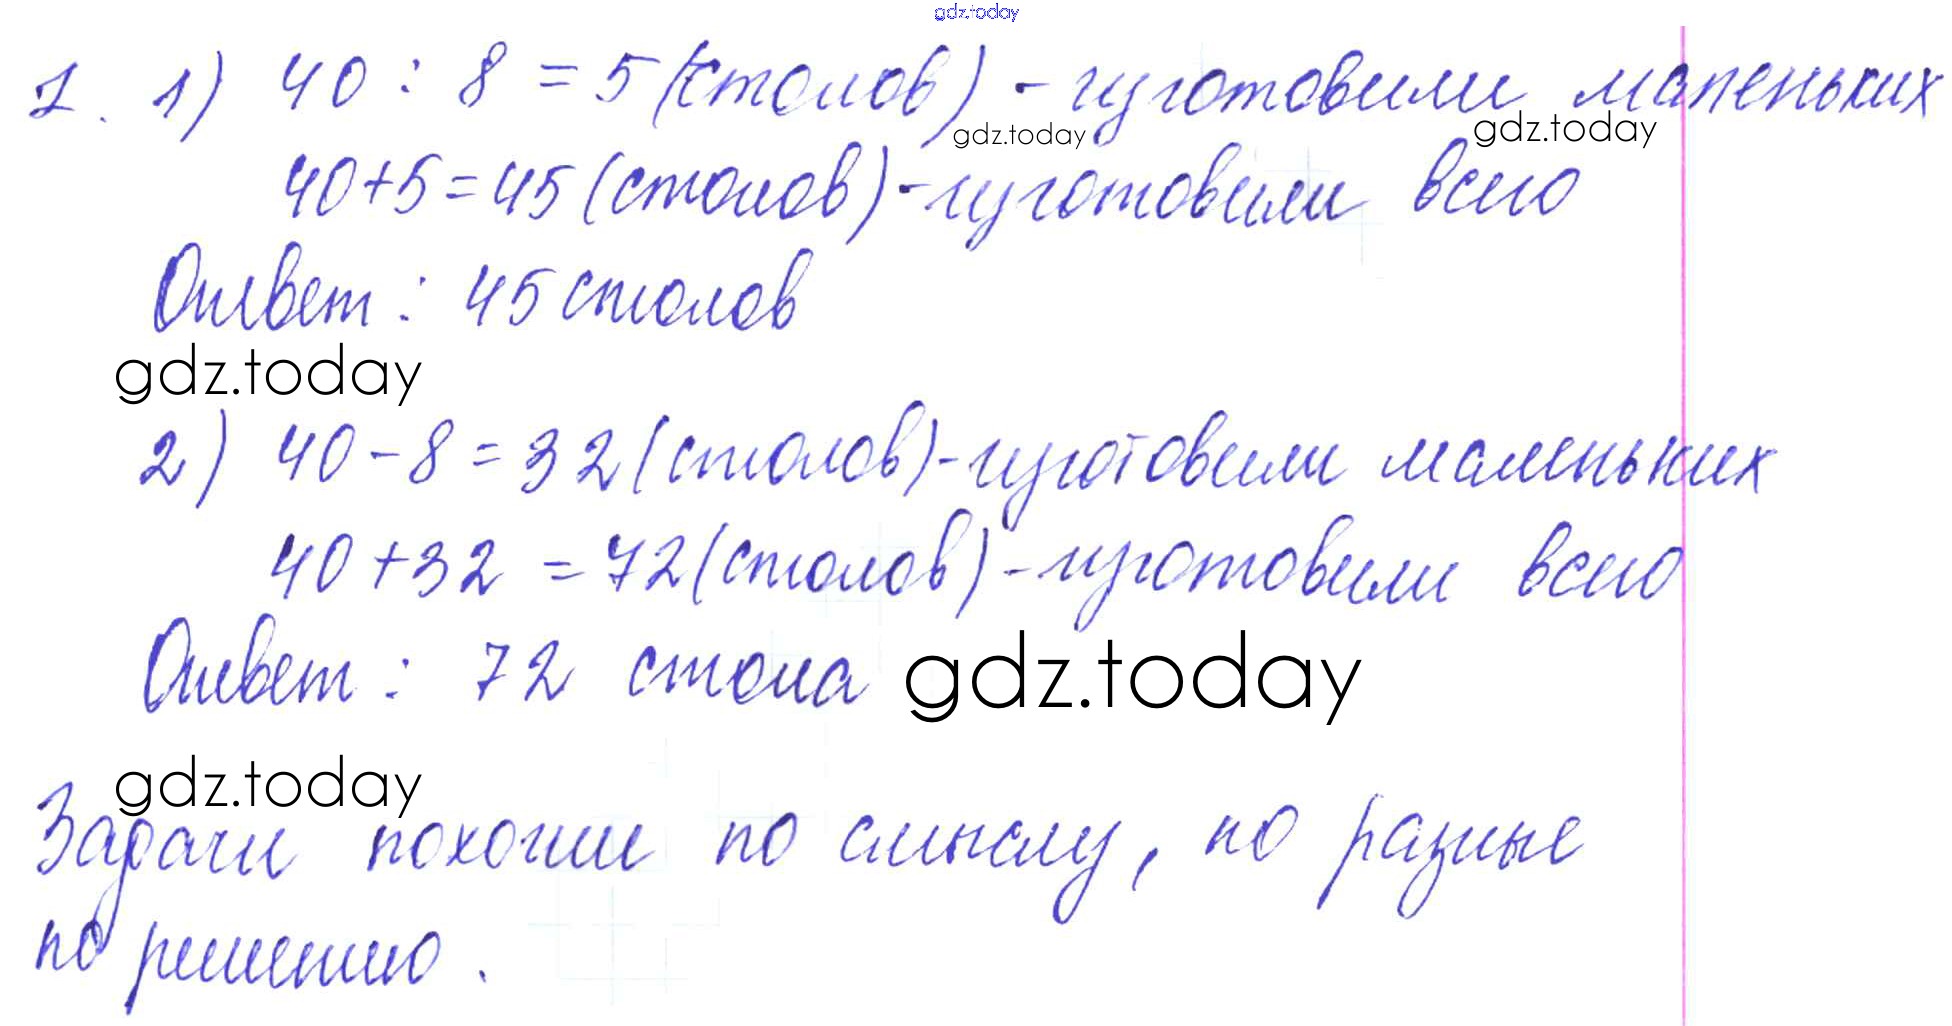 gdz.today
1. 1) 40 : 8 = 5 (столов) - изготовили маленьких
gdz.today gdz.today
40+5=45 (столов) - изготовили всего
Ответ: 45 столов
gdz.today
2) 40-8=32 (столов) - изготовили маленьких
40+32=72 (столов) - изготовили всего
Ответ: 72 стола
gdz.today
gdz.today
Задачи похожие по смыслу, но разные
по решению.